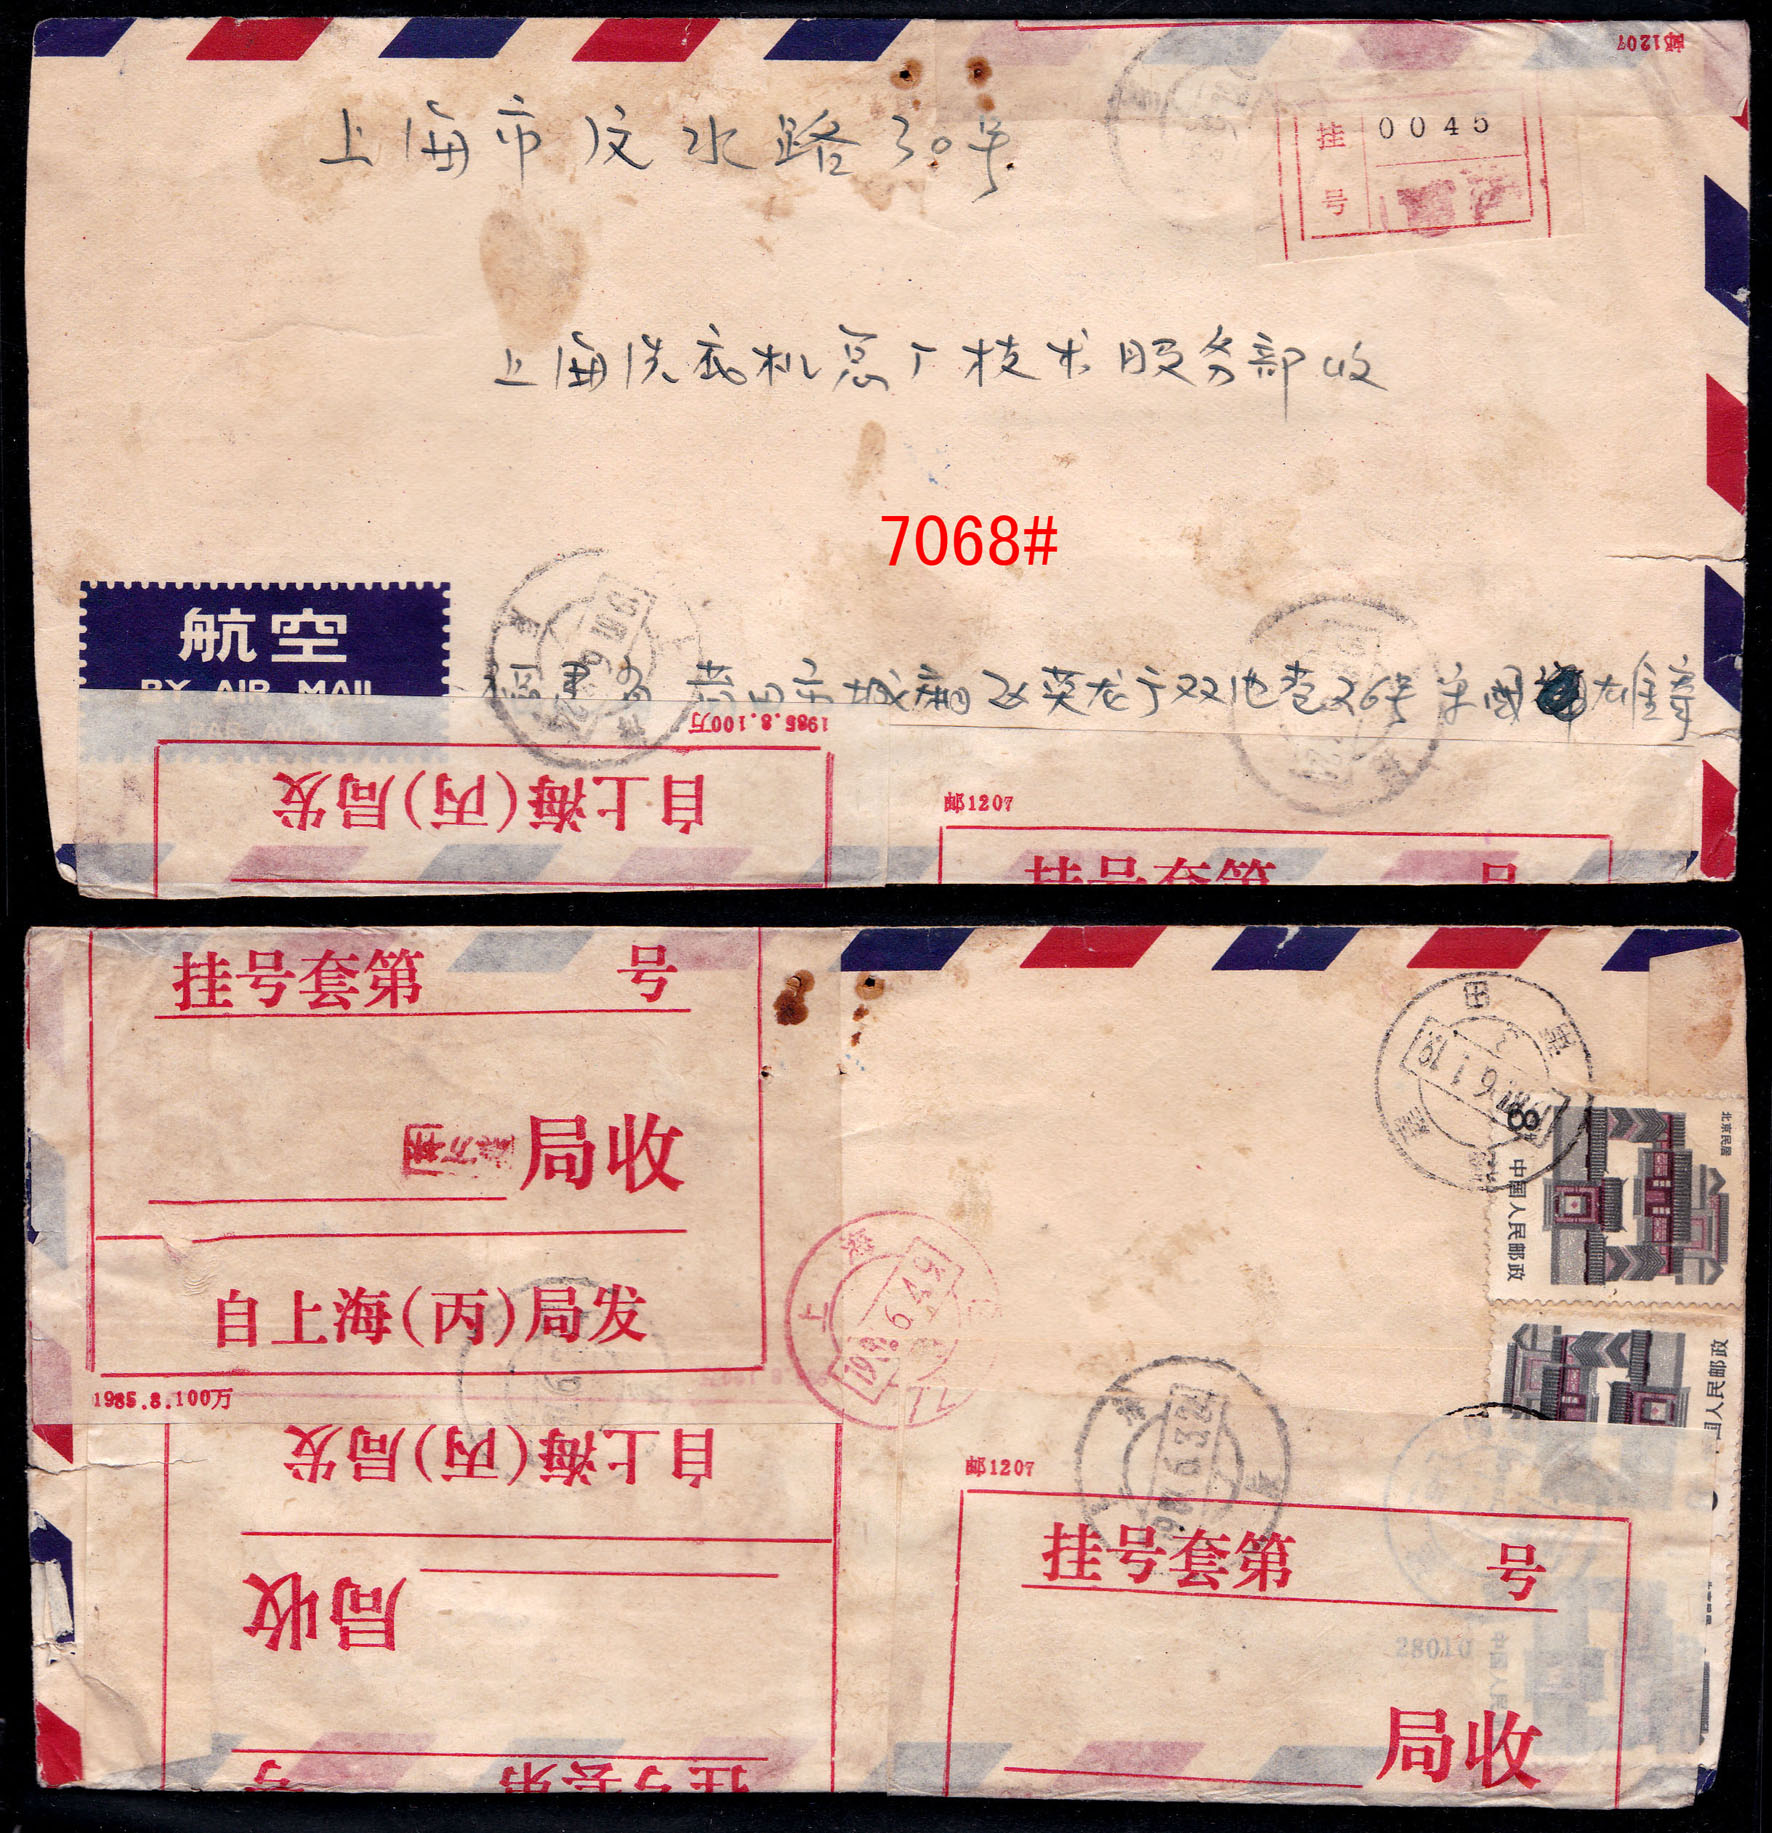 邮1207
挂号 0045
上海市汶水路30号
上海洗衣机总厂技术服务部收
7068#
航空
BY AIR MAIL
福建省莆田市城厢区英龙子双池巷26号
1985.8.100万
自上海(丙)局发
邮1207
挂号套第 号
挂号套第 号
局收
自上海(丙)局发
1985.8.100万
自上海(丙)局发
局收
挂号套第 号
上海
北京民居
8
中国人民邮政
中国人民邮政
邮1207
挂号套第 号
28010
局收